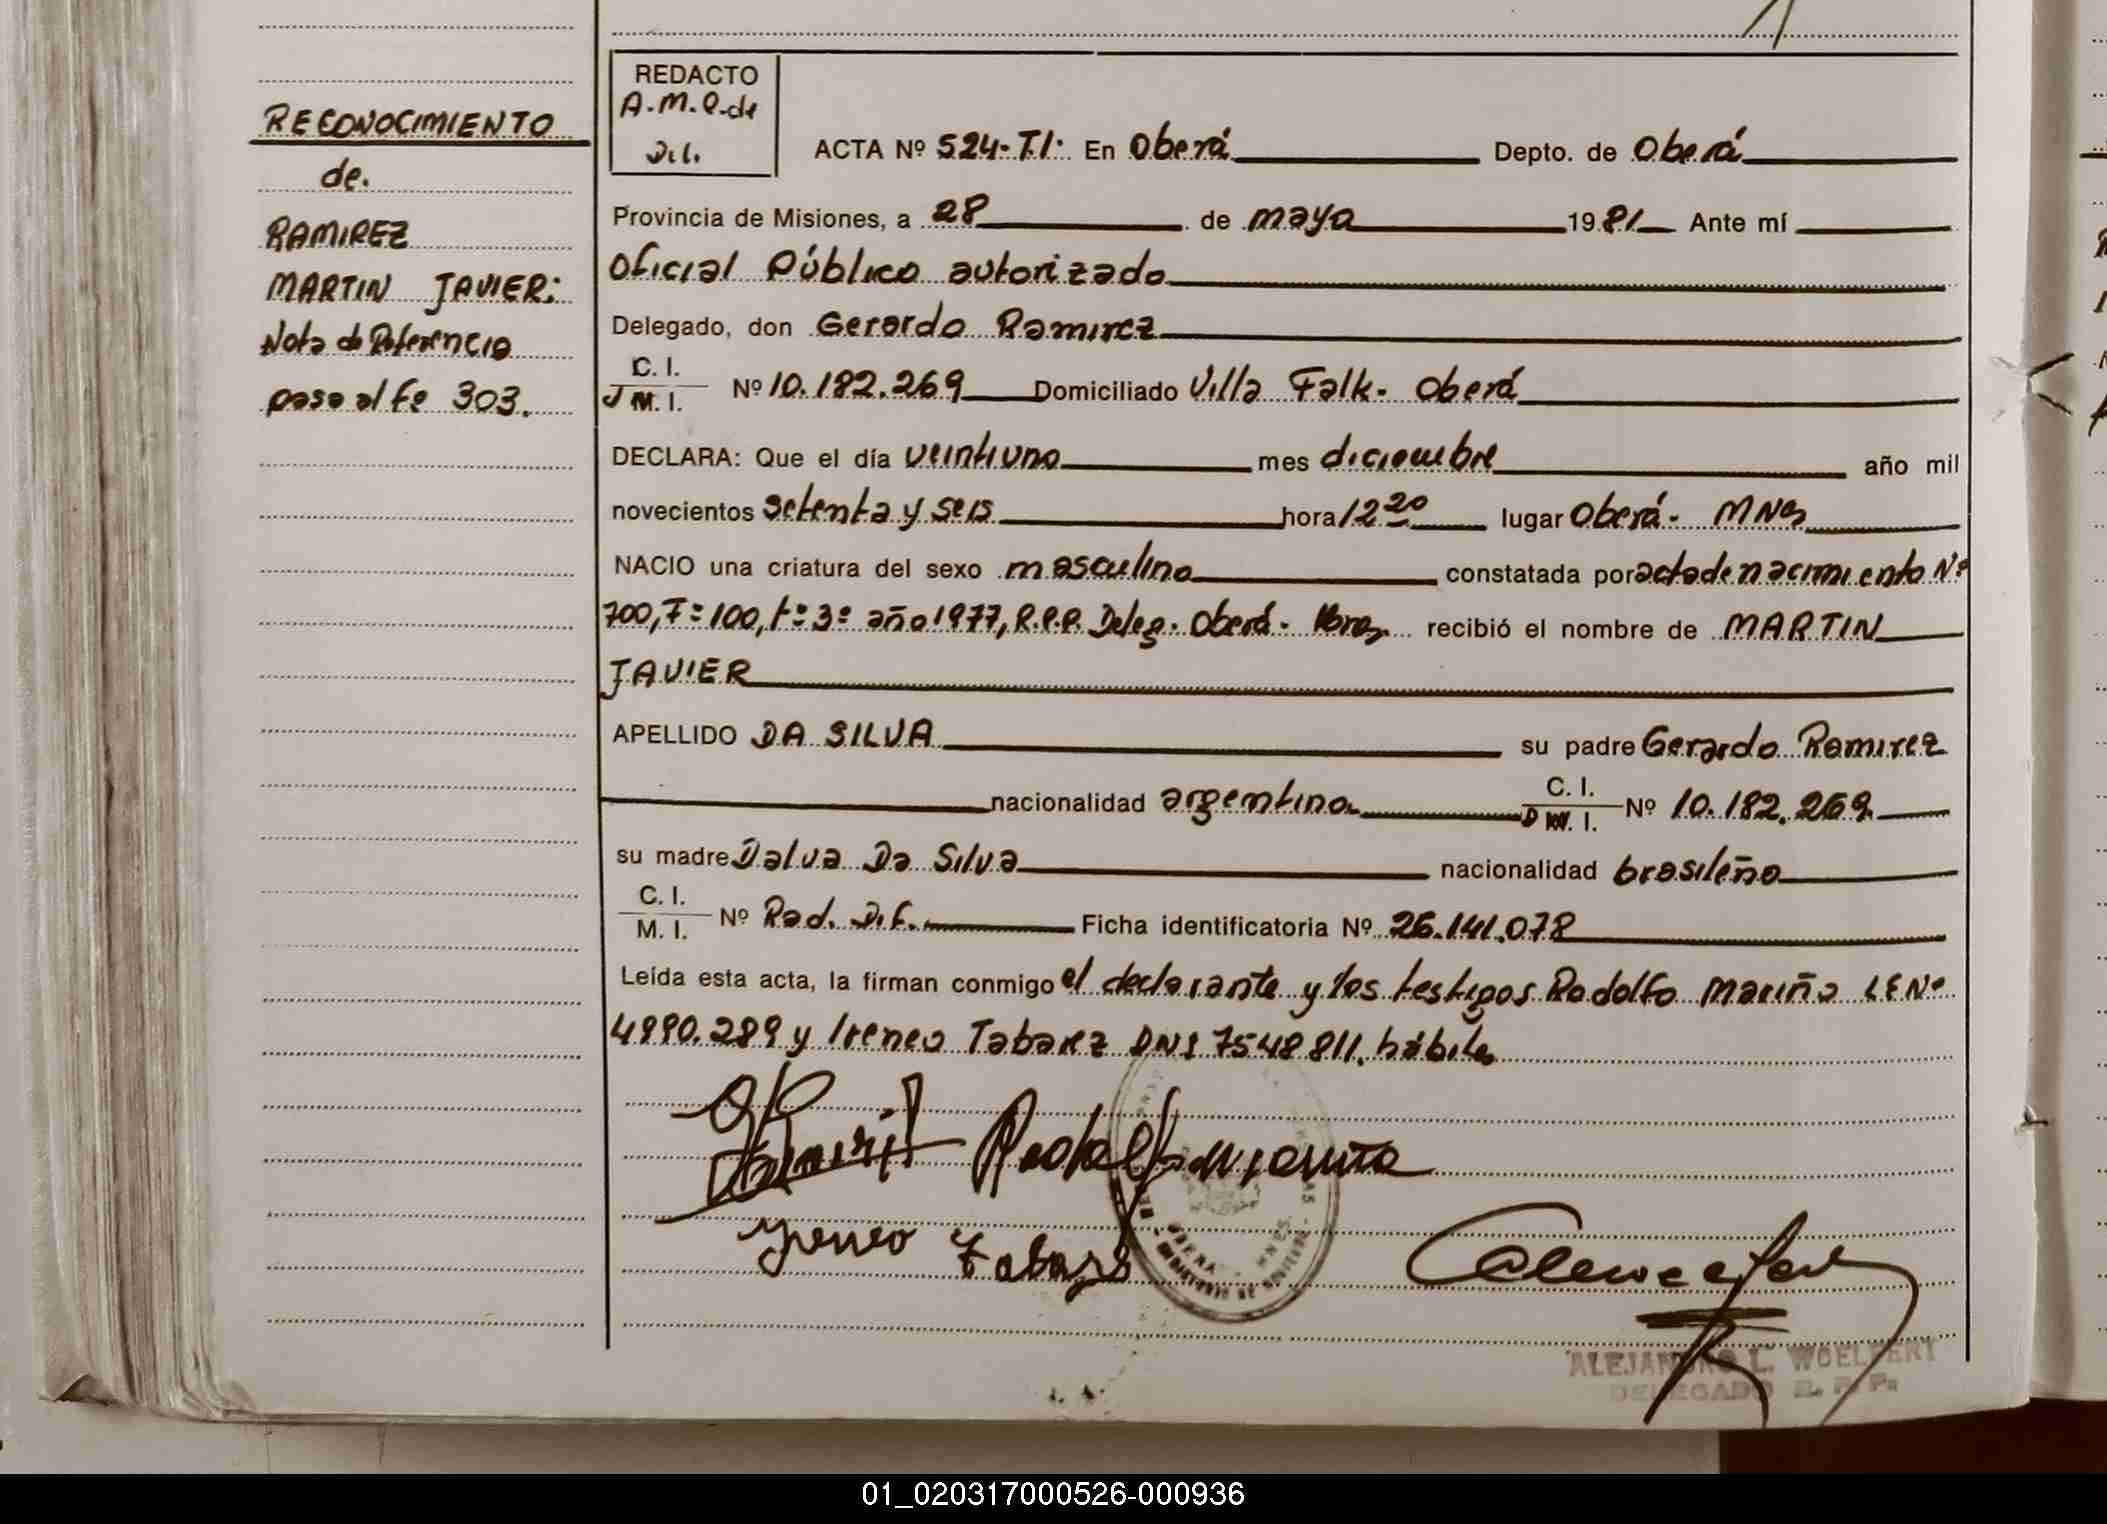 RECONOCIMIENTO
de.
RAMIREZ
MARTIN JAVIER:
Nota de Referencia
pasa al Fº 303.
REDACTO
A.M.Q. de
ACTA Nº 524-T.I. En Oberá Depto. de Oberá
Provincia de Misiones, a 28 de mayo 1981 Ante mí
Oficial Público autorizado
Delegado, don Gerardo Ramirez
C. I.
M. I. Nº 10.182.269 Domiciliado Villa Falk - Oberá
DECLARA: Que el día veintiuno mes diciembre año mil
novecientos setenta y seis hora 12 20 lugar Oberá - MNes
NACIO una criatura del sexo masculino constatada por acta de nacimiento Nº
700, Fº 100, tº 3º año 1977, R.P.P. Deleg. Oberá - recibió el nombre de MARTIN
JAVIER
APELLIDO DA SILVA su padre Gerardo Ramirez
nacionalidad argentina C. I.
Nº 10.182.269
su madre Dalva Da Silva nacionalidad brasileña
C. I.
M. I. Nº Rad. Dif. Ficha identificatoria Nº 26.141.078
Leída esta acta, la firman conmigo el declarante y los testigos Rodolfo Mariño LE Nº
4990.289 y Ireneo Tabarez DNI 7548811. hábiles
Yreneo Tabarez
ALEJANDRO L. WOELFERT
DELEGADO R. P. P.
01_020317000526-000936